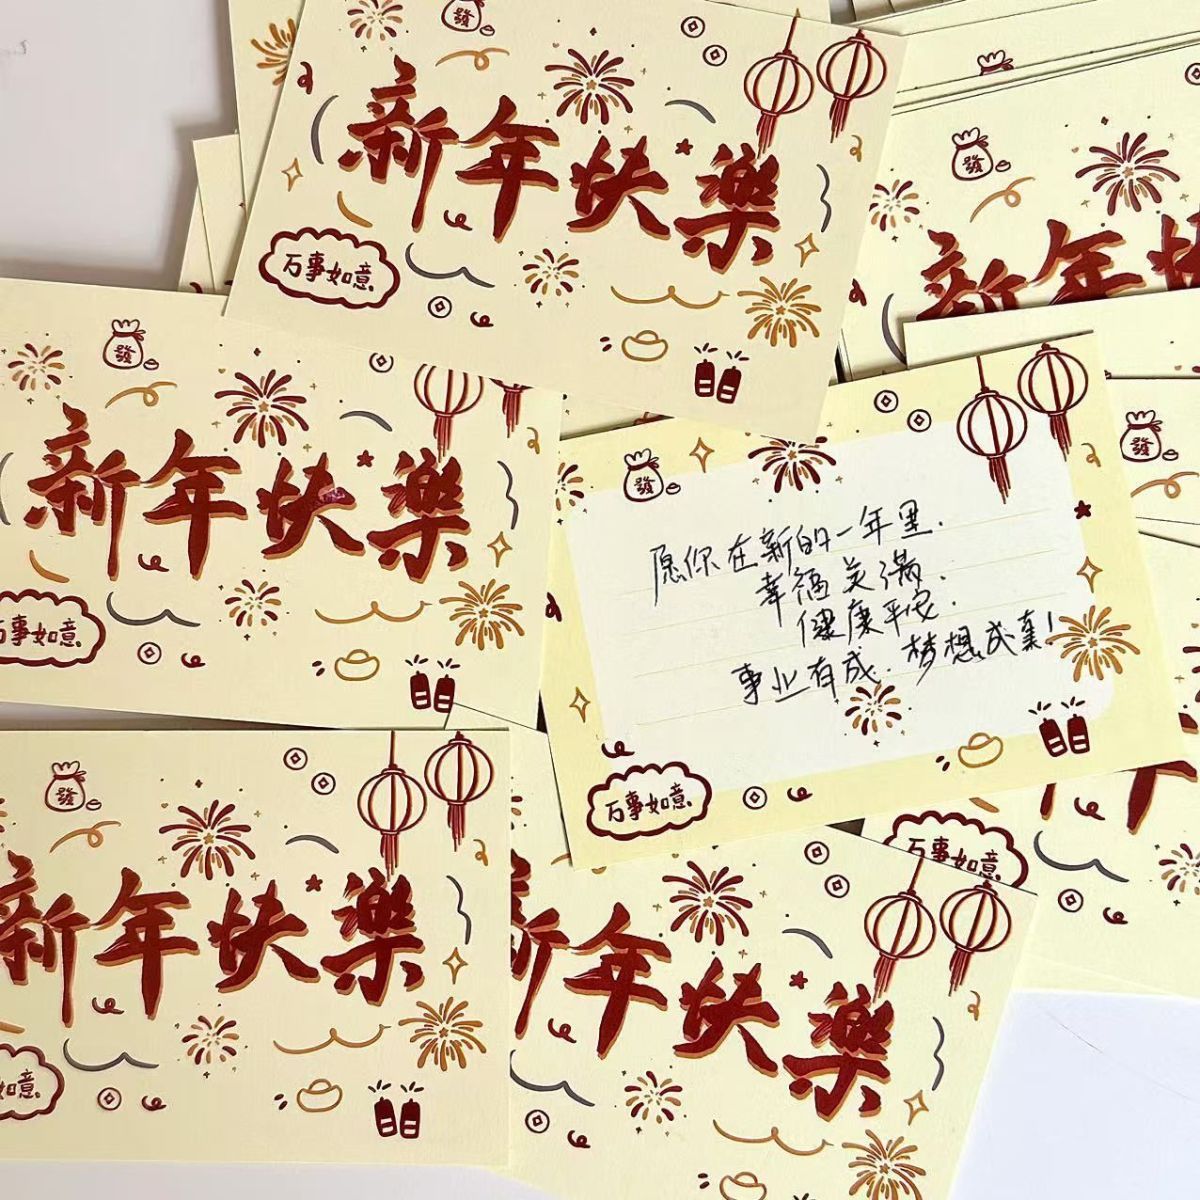 發
新年快樂
万事如意
發
新年快
發
新年快樂
万事如意
發
發
愿你在新的一年里.
幸福美满
健康平安.
事业有成.梦想成真!
万事如意
發
新年快樂
如意
万事如意
新年快樂